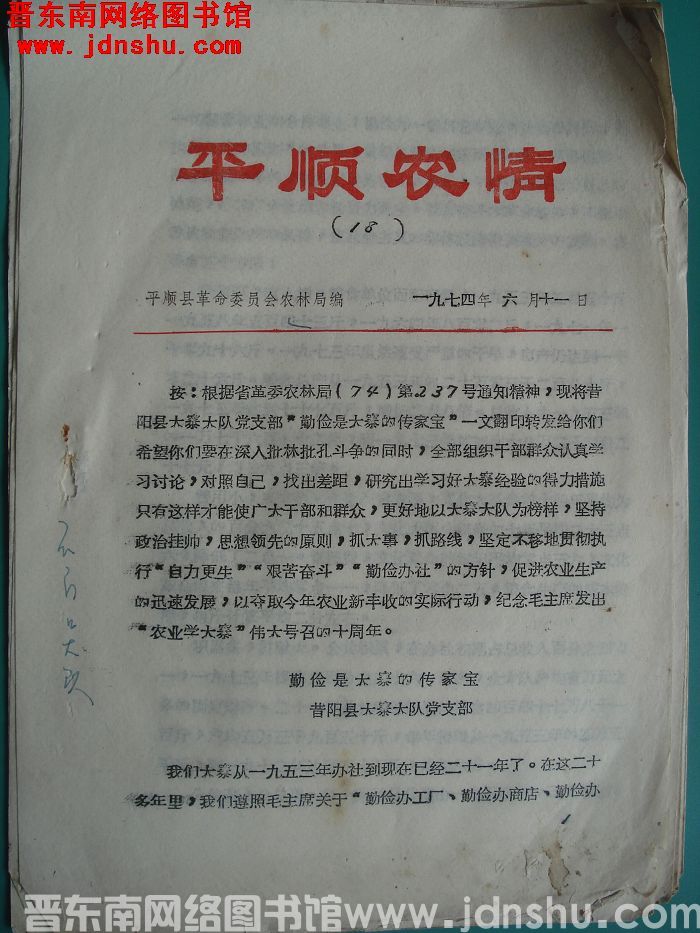 晋东南网络图书馆
www.jdnshu.com
平顺农情
(18)
平顺县革命委员会农林局编 一九七四年六月十一日
按：根据省革委农林局(74)第237号通知精神，现将昔
阳县大寨大队党支部“勤俭是大寨的传家宝”一文翻印转发给你们
希望你们要在深入批林批孔斗争的同时，全部组织干部群众认真学
习讨论，对照自己，找出差距，研究出学习好大寨经验的得力措施
只有这样才能使广大干部和群众，更好地以大寨大队为榜样，坚持
政治挂帅，思想领先的原则，抓大事，抓路线，坚定不移地贯彻执
行“自力更生”“艰苦奋斗”“勤俭办社”的方针，促进农业生产
的迅速发展，以夺取今年农业新丰收的实际行动，纪念毛主席发出
“农业学大寨”伟大号召的十周年。
勤俭是大寨的传家宝
昔阳县大寨大队党支部
我们大寨从一九五三年办社到现在已经二十一年了。在这二十
多年里，我们遵照毛主席关于“勤俭办工厂、勤俭办商店、勤俭办
1
晋东南网络图书馆www.jdnshu.com